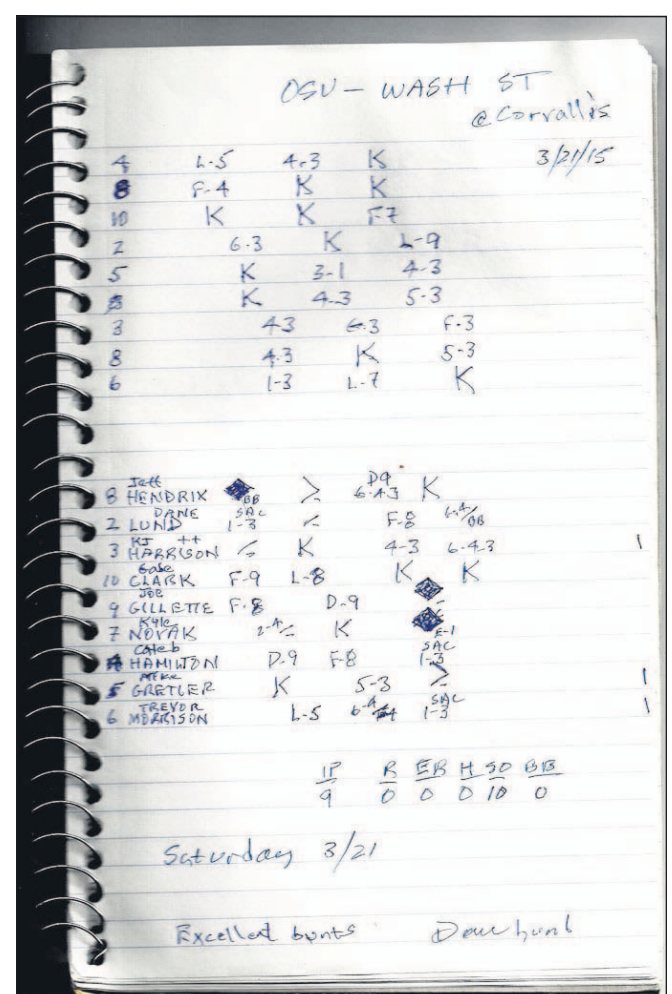 OSU - WASH ST
@ Corvallis
3/21/15
4 L-5 4-3 K
8 F-4 K K
10 K K F7
2 6-3 K L-9
5 K 3-1 4-3
K 4-3 5-3
3 4-3 6-3 F-3
8 4-3 K 5-3
6 1-3 L-7 K
Jeff D9
8 HENDRIX BB 6-4-3 K
DANE SAC
2 LUND 1-3 F-8 6-4/BB
KJ ++
3 HARRISON K 4-3 6-4-3 1
Gabe
10 CLARK F-9 L-8 K K
JOE
9 GILLETTE F-8 D-9
Kyle
7 NOVAK 2-4 K E-1
Caleb SAC
HAMILTON D-9 F-8 1-3
MIKE
5 GRETLER K 5-3 1
TREVOR SAC
6 MORRISON L-5 6-4 1-3 1
IP R ER H SO BB
9 0 0 0 10 0
Saturday 3/21
Excellent bunts